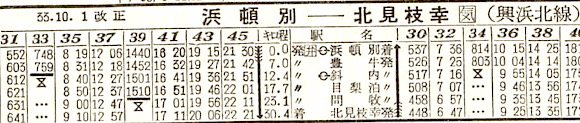 33.10.1改正 浜頓別──北見枝幸 図(興浜北線)
31 33 35 37 39 41 43 45 粁程 駅名 30 32 34 36 38
552 748 8 19 12 06 1440 16 20 19 15 21 30 0.0 発 浜頓別 着 537 7 36 814 10 15 14 25
605 759 8 31 12 18 1452 16 32 19 27 21 42 7.0 〃 豊牛 発 526 7 25 803 10 04 14 14
612 8 40 12 27 1501 16 41 19 36 21 51 12.4 〃 斜内 〃 517 7 16 9 55 14 05
621 8 50 12 37 1510 16 51 19 46 22 01 17.7 〃 目梨泊 〃 508 7 07 … 9 46 13 56
631 … 9 00 12 47 17 01 19 56 22 11 23.1 〃 問牧 〃 458 6 57 … 9 36 13 45
641 … 9 10 12 57 … 17 11 20 06 22 21 30.4 着 北見枝幸 発 448 6 47 … 9 25 13 35